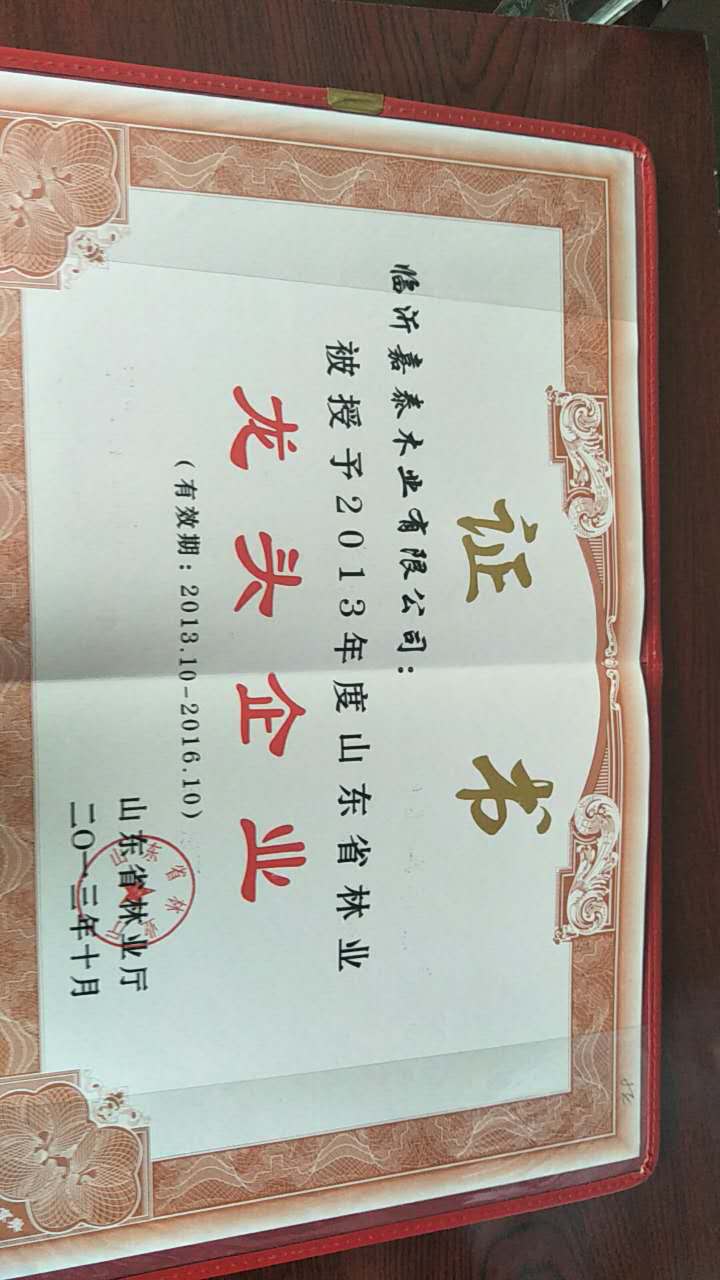 证书
临沂嘉泰木业有限公司：
被授予2013年度山东省林业
龙头企业
（有效期：2013.10-2016.10）
山东省林业厅
二〇一三年十月